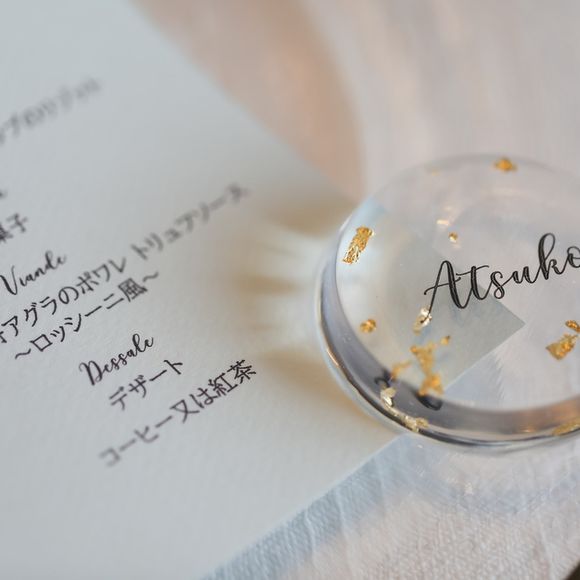 菓子
Viande
アグラのポワレ トリュフソース
～ロッシーニ風～
Dessale
デザート
コーヒー又は紅茶
Atsuko